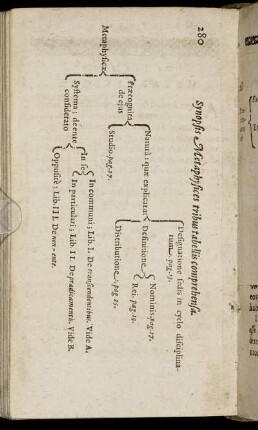 280
Synopsis Metaphysices tribus tabellis comprehensa.
Metaphysicæ
Præcognita
de ejus
Naturâ: quæ explicatur
Designatione sedis in cyclo disciplina-
rum. pag.
Definitione
Nominis. pag. 17.
Rei. pag. 19.
Distributione. pag. 25.
Studio. pag. 27.
Systema; de ente
considerato
In se
In communi; Lib. I. De transcendentibus. Vide A.
In particulari; Lib. II. De prædicamentis. Vide B.
Opposité; Lib. III. De non-ente.